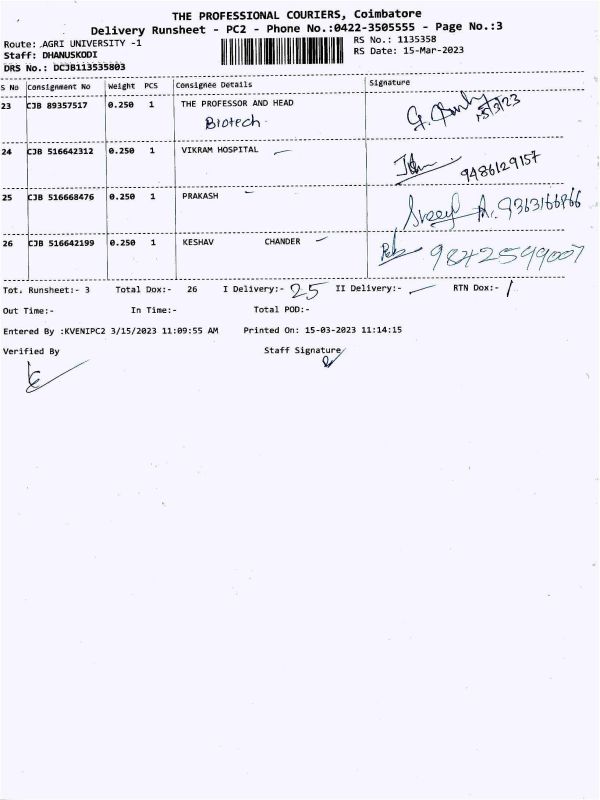 THE PROFESSIONAL COURIERS, Coimbatore
Delivery Runsheet - PC2 - Phone No.:0422-3505555 - Page No.:3
Route: AGRI UNIVERSITY -1
RS No.: 1135358
Staff: DHANUSKODI
RS Date: 15-Mar-2023
DRS No.: DCJB113535803
S No Consignment No Weight PCS Consignee Details Signature
23 CJB 89357517 0.250 1 THE PROFESSOR AND HEAD
Biotech.
15/3/23
24 CJB 516642312 0.250 1 VIKRAM HOSPITAL
9486129157
25 CJB 516668476 0.250 1 PRAKASH
26 CJB 516642199 0.250 1 KESHAV CHANDER
9842599007
Tot. Runsheet:- 3 Total Dox:- 26 I Delivery:- 25 II Delivery:- RTN Dox:- 1
Out Time:- In Time:- Total POD:-
Entered By :KVENIPC2 3/15/2023 11:09:55 AM Printed On: 15-03-2023 11:14:15
Verified By Staff Signature